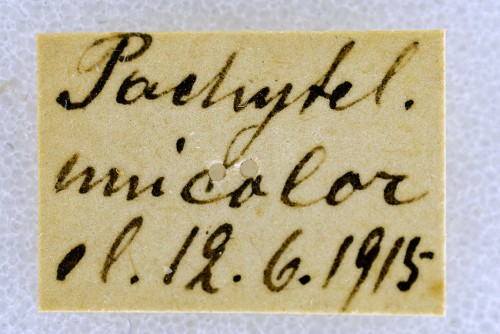 Pachytel.
unicolor
el. 12. 6. 1915